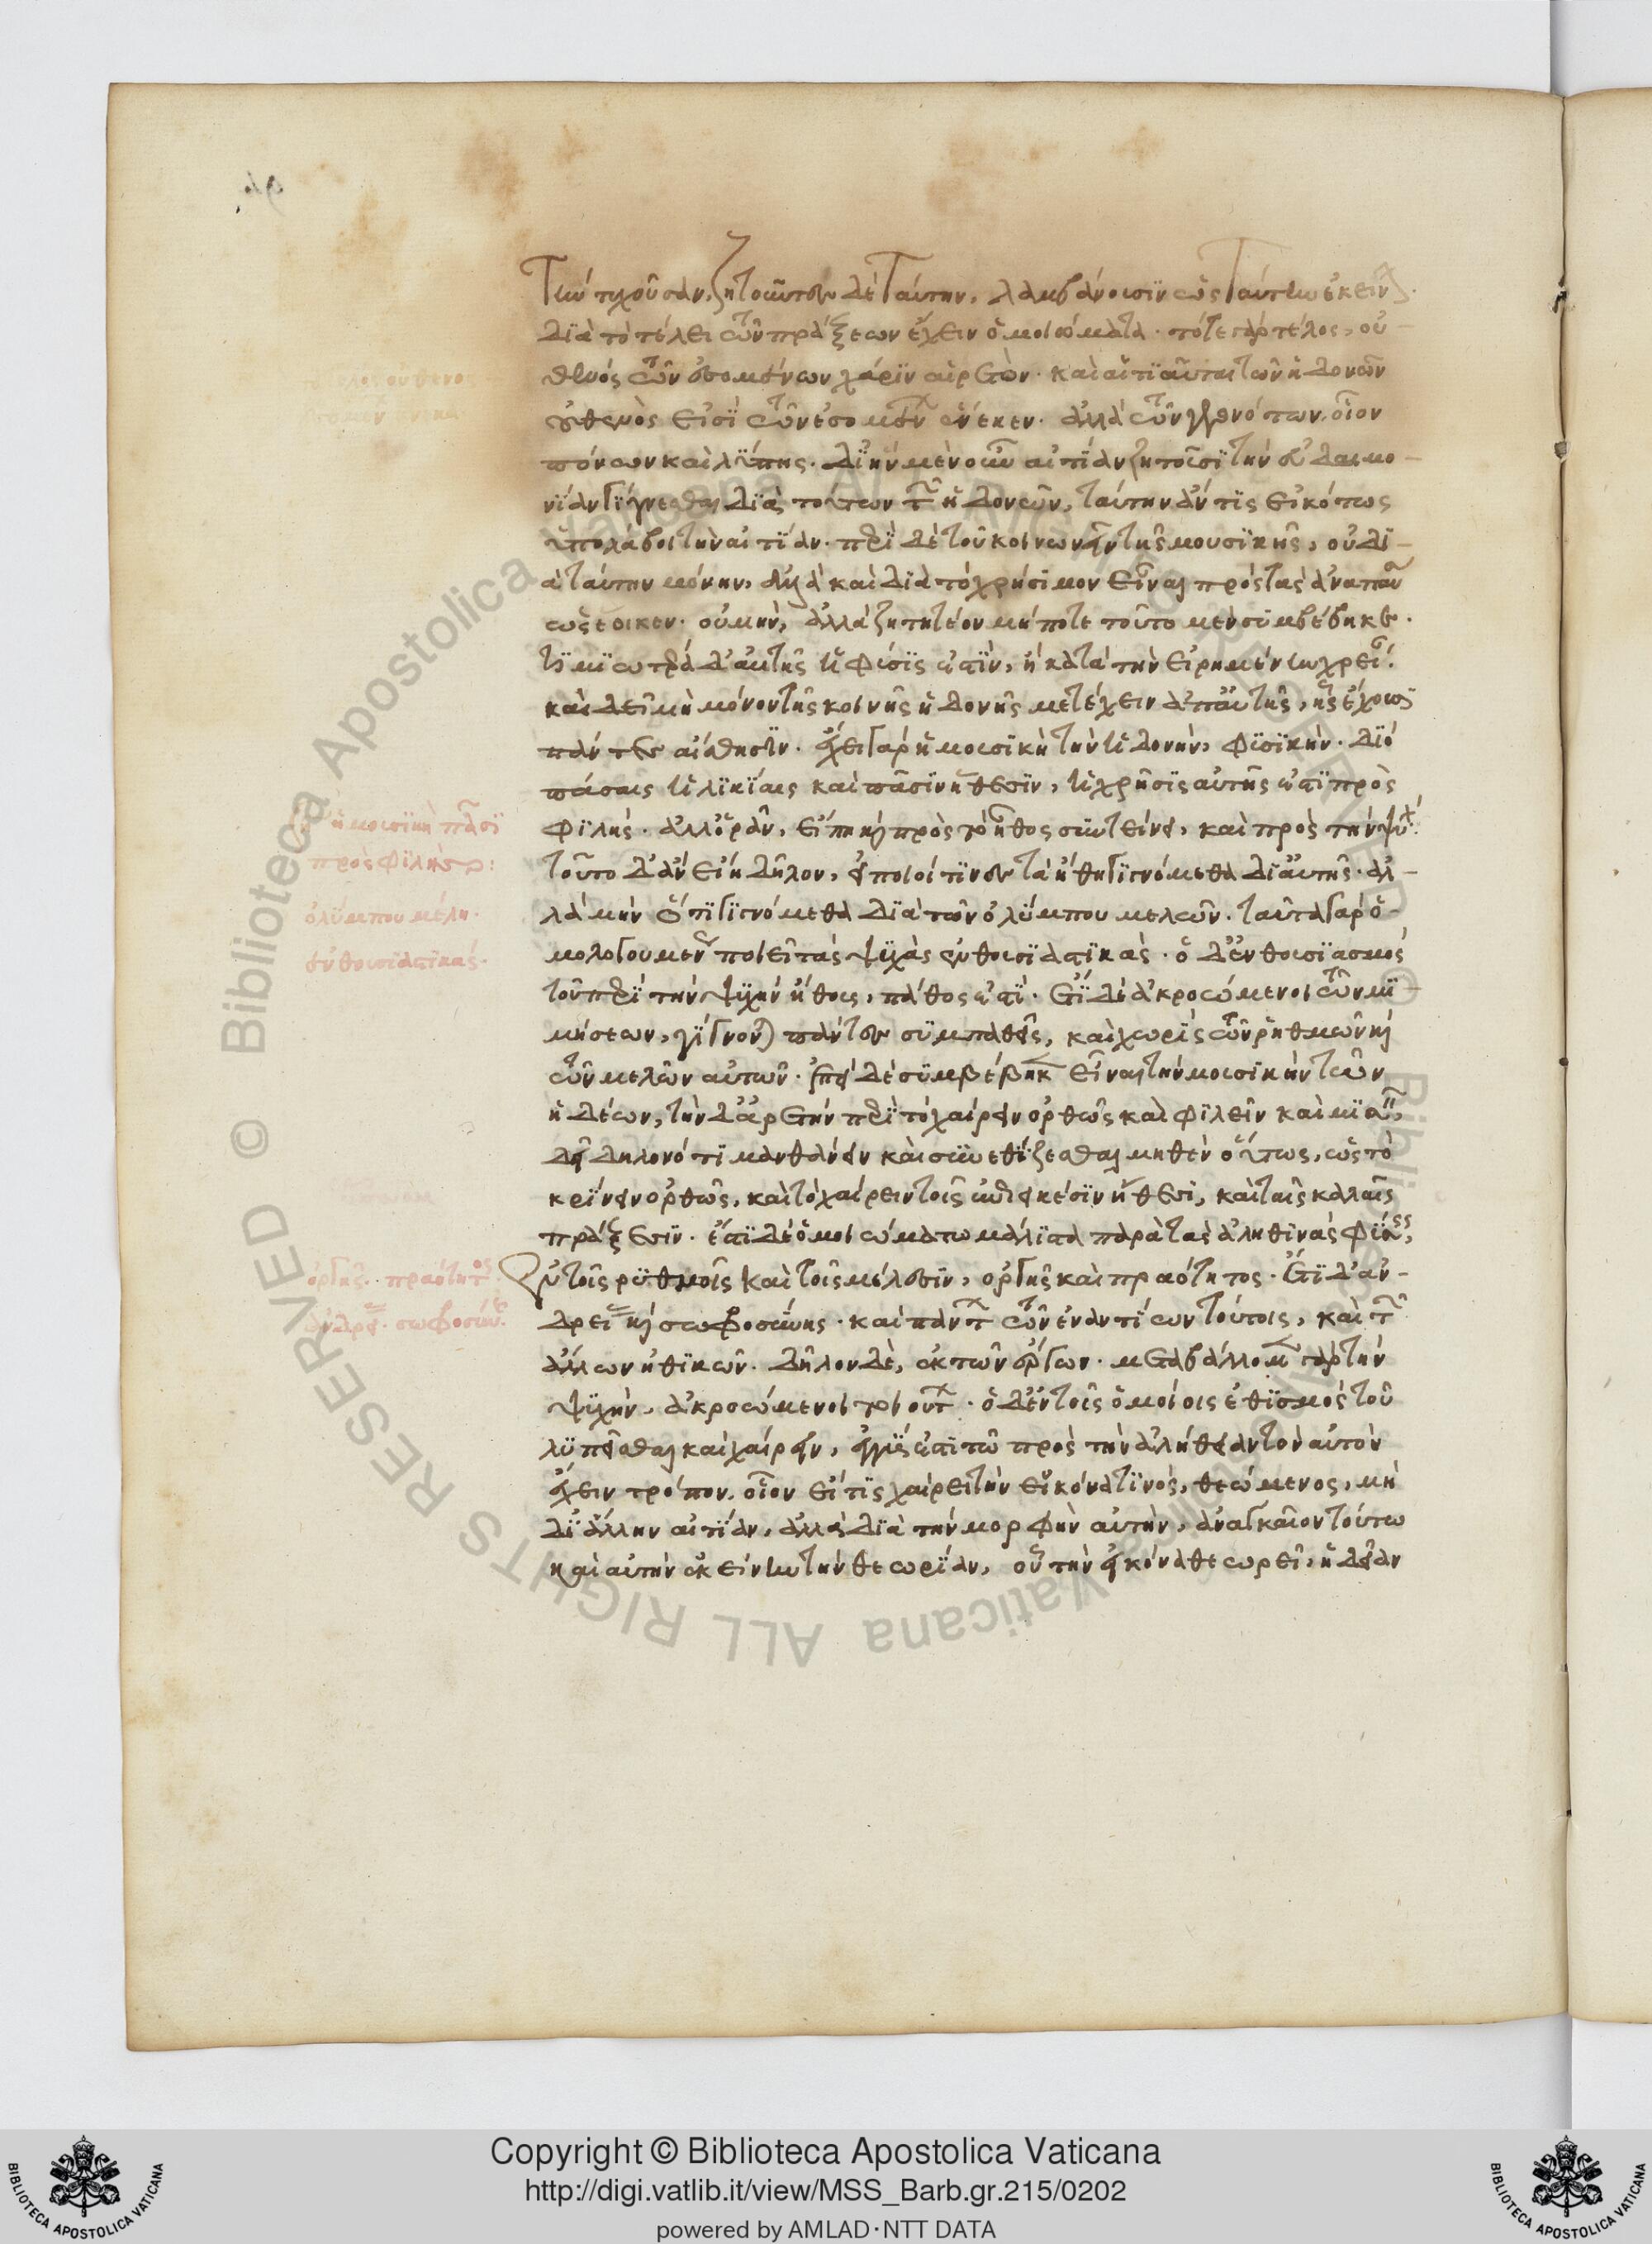 τὴν τυχοῦσαν. ζητοῦντες δὲ ταύτην, λαμβάνουσιν ὡς ταύτην ἐκείνην.
διὰ τὸ τέλει τῶν πράξεων ἔχειν ὁμοίωμά τι. τό τε γὰρ τέλος, οὐ-
θενὸς τῶν ἐσομένων χάριν αἱρετόν. καὶ αἱ τοιαῦται τῶν ἡδονῶν
οὐθενός εἰσι τῶν ἐσομένων ἕνεκεν. ἀλλὰ τῶν γεγονότων. οἷον
πόνων καὶ λύπης. δι' ἣν μὲν οὖν αἰτίαν ζητοῦσι τὴν εὐδαιμο-
νίαν γίγνεσθαι διὰ τούτων τῶν ἡδονῶν, ταύτην ἄν τις εἰκότως
ὑπολάβοι τὴν αἰτίαν. περὶ δὲ τοῦ κοινωνεῖν τῆς μουσικῆς, οὐ δι-
ὰ ταύτην μόνην, ἀλλὰ καὶ διὰ τὸ χρήσιμον εἶναι πρὸς τὰς ἀναπαύ
ὡς ἔοικεν. οὐ μὴν, ἀλλὰ ζητητέον μή ποτε τοῦτο μὲν συμβέβηκε.
τιμιωτέρα δ' αὐτῆς ἡ φύσις ἐστὶν, ἢ κατὰ τὴν εἰρημένην χρεί.
καὶ δεῖ μὴ μόνον τῆς κοινῆς ἡδονῆς μετέχειν ἀπ' αὐτῆς, ἧς ἔχουσι
πάντες αἴσθησιν. ἔχει γὰρ ἡ μουσικὴ τὴν ἡδονὴν, φυσικήν. διὸ
πάσαις ἡλικίαις καὶ πᾶσιν ἤθεσιν, ἡ χρῆσις αὐτῆς ἐστι προσ
φιλής. ἀλλ' ὁρᾶν, εἴ πῃ καὶ πρὸς τὸ ἦθος συντείνει, καὶ πρὸς τὴν ψυχ.
τοῦτο δ' ἂν εἴη δῆλον, εἰ ποιοί τινες τὰ ἤθη γινόμεθα δι' αὐτῆς. ἀλ-
λὰ μὴν ὅτι γινόμεθα διὰ τῶν ὀλύμπου μελῶν. ταῦτα γὰρ ὁ-
μολογουμένως ποιεῖ τὰς ψυχὰς ἐνθουσιαστικάς. ὁ δ' ἐνθουσιασμὸς
τοῦ περὶ τὴν ψυχὴν ἤθους, πάθος ἐστί. ἔτι δὲ ἀκροώμενοι τῶν μι-
μήσεων, γίγνονται πάντες συμπαθεῖς, καὶ χωρὶς τῶν ῥυθμῶν καὶ
τῶν μελῶν αὐτῶν. ἐπεὶ δὲ συμβέβηκεν εἶναι τὴν μουσικὴν τῶν
ἡδέων, τὴν δ' ἀρετὴν περὶ τὸ χαίρειν ὀρθῶς καὶ φιλεῖν καὶ μισεῖν,
δεῖ δηλονότι μανθάνειν καὶ συνεθίζεσθαι μηθὲν οὕτως, ὡς τὸ
κρίνειν ὀρθῶς, καὶ τὸ χαίρειν τοῖς ἐπιεικέσιν ἤθεσι, καὶ ταῖς καλαῖς
πράξεσιν. ἔστι δὲ ὁμοιώματα μάλιστα παρὰ τὰς ἀληθινὰς φύσεις,
ἐν τοῖς ῥυθμοῖς καὶ τοῖς μέλεσιν, ὀργῆς καὶ πραότητος. ἔτι δ' ἀν-
δρείας καὶ σωφροσύνης. καὶ πάντων τῶν ἐναντίων τούτοις, καὶ τῶν
ἄλλων ἠθικῶν. δῆλον δὲ, ἐκ τῶν ἔργων. μεταβάλλομεν γὰρ τὴν
ψυχὴν, ἀκροώμενοι τοιούτων. ὁ δ' ἐν τοῖς ὁμοίοις ἐθισμὸς τοῦ
λυπεῖσθαι καὶ χαίρειν, ἐγγύς ἐστι τῷ πρὸς τὴν ἀλήθειαν τὸν αὐτὸν
ἔχειν τρόπον. οἷον εἴ τις χαίρει τὴν εἰκόνα τινὸς, θεώμενος, μὴ
δι' ἄλλην αἰτίαν, ἀλλὰ διὰ τὴν μορφὴν αὐτὴν, ἀναγκαῖον τούτω
καὶ αὐτὴν ἐκείνην τὴν θεωρίαν, οὗ τὴν εἰκόνα θεωρεῖ, ἡδεῖαν
ἡ μουσικὴ πᾶσι
προσφιλής:
ὀλύμπου μέλη.
ἐνθουσιαστικάς.
ὀργῆς. πραότητος
ἀνδρεί. σωφροσύν.
Copyright © Biblioteca Apostolica Vaticana
http://digi.vatlib.it/view/MSS_Barb.gr.215/0202
powered by AMLAD·NTT DATA
BIBLIOTECA APOSTOLICA VATICANA
BIBLIOTECA APOSTOLICA VATICANA
© Biblioteca Apostolica Vaticana ALL RIGHTS RESERVED